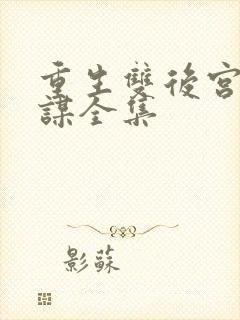 重生雙後宮
謀全集
影蘇